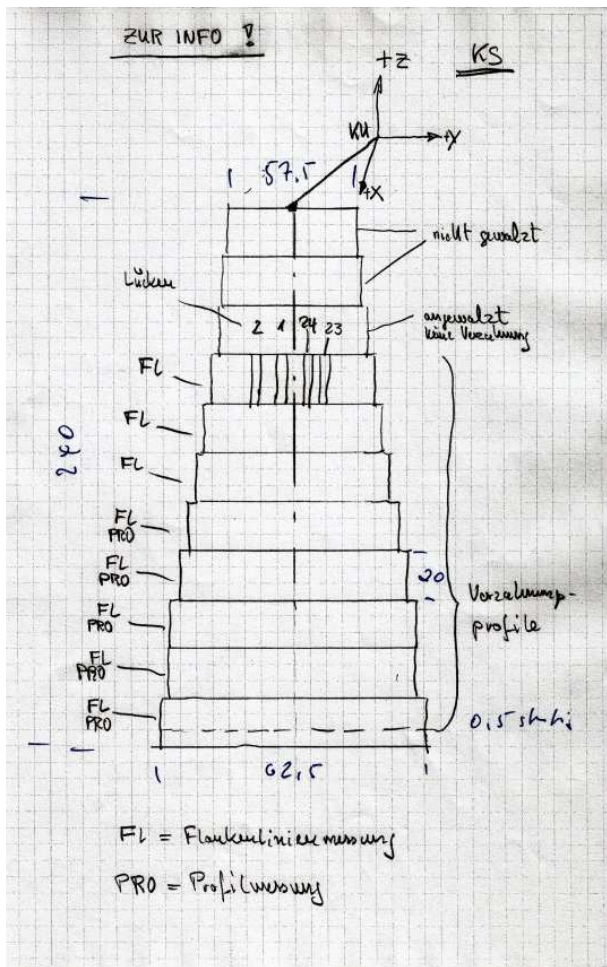 ZUR INFO !
KS
+Z
KU
+X
+X
57,5
nicht gewalzt
Lücken
2 1 24 23
angewalzt
keine Verzahnung
FL
FL
FL
240
FL
PRO
FL
PRO
20
FL
PRO
Verzahnungs-
profile
FL
PRO
FL
PRO
0,5
62,5
FL = Flankenlinienmessung
PRO = Profilmessung